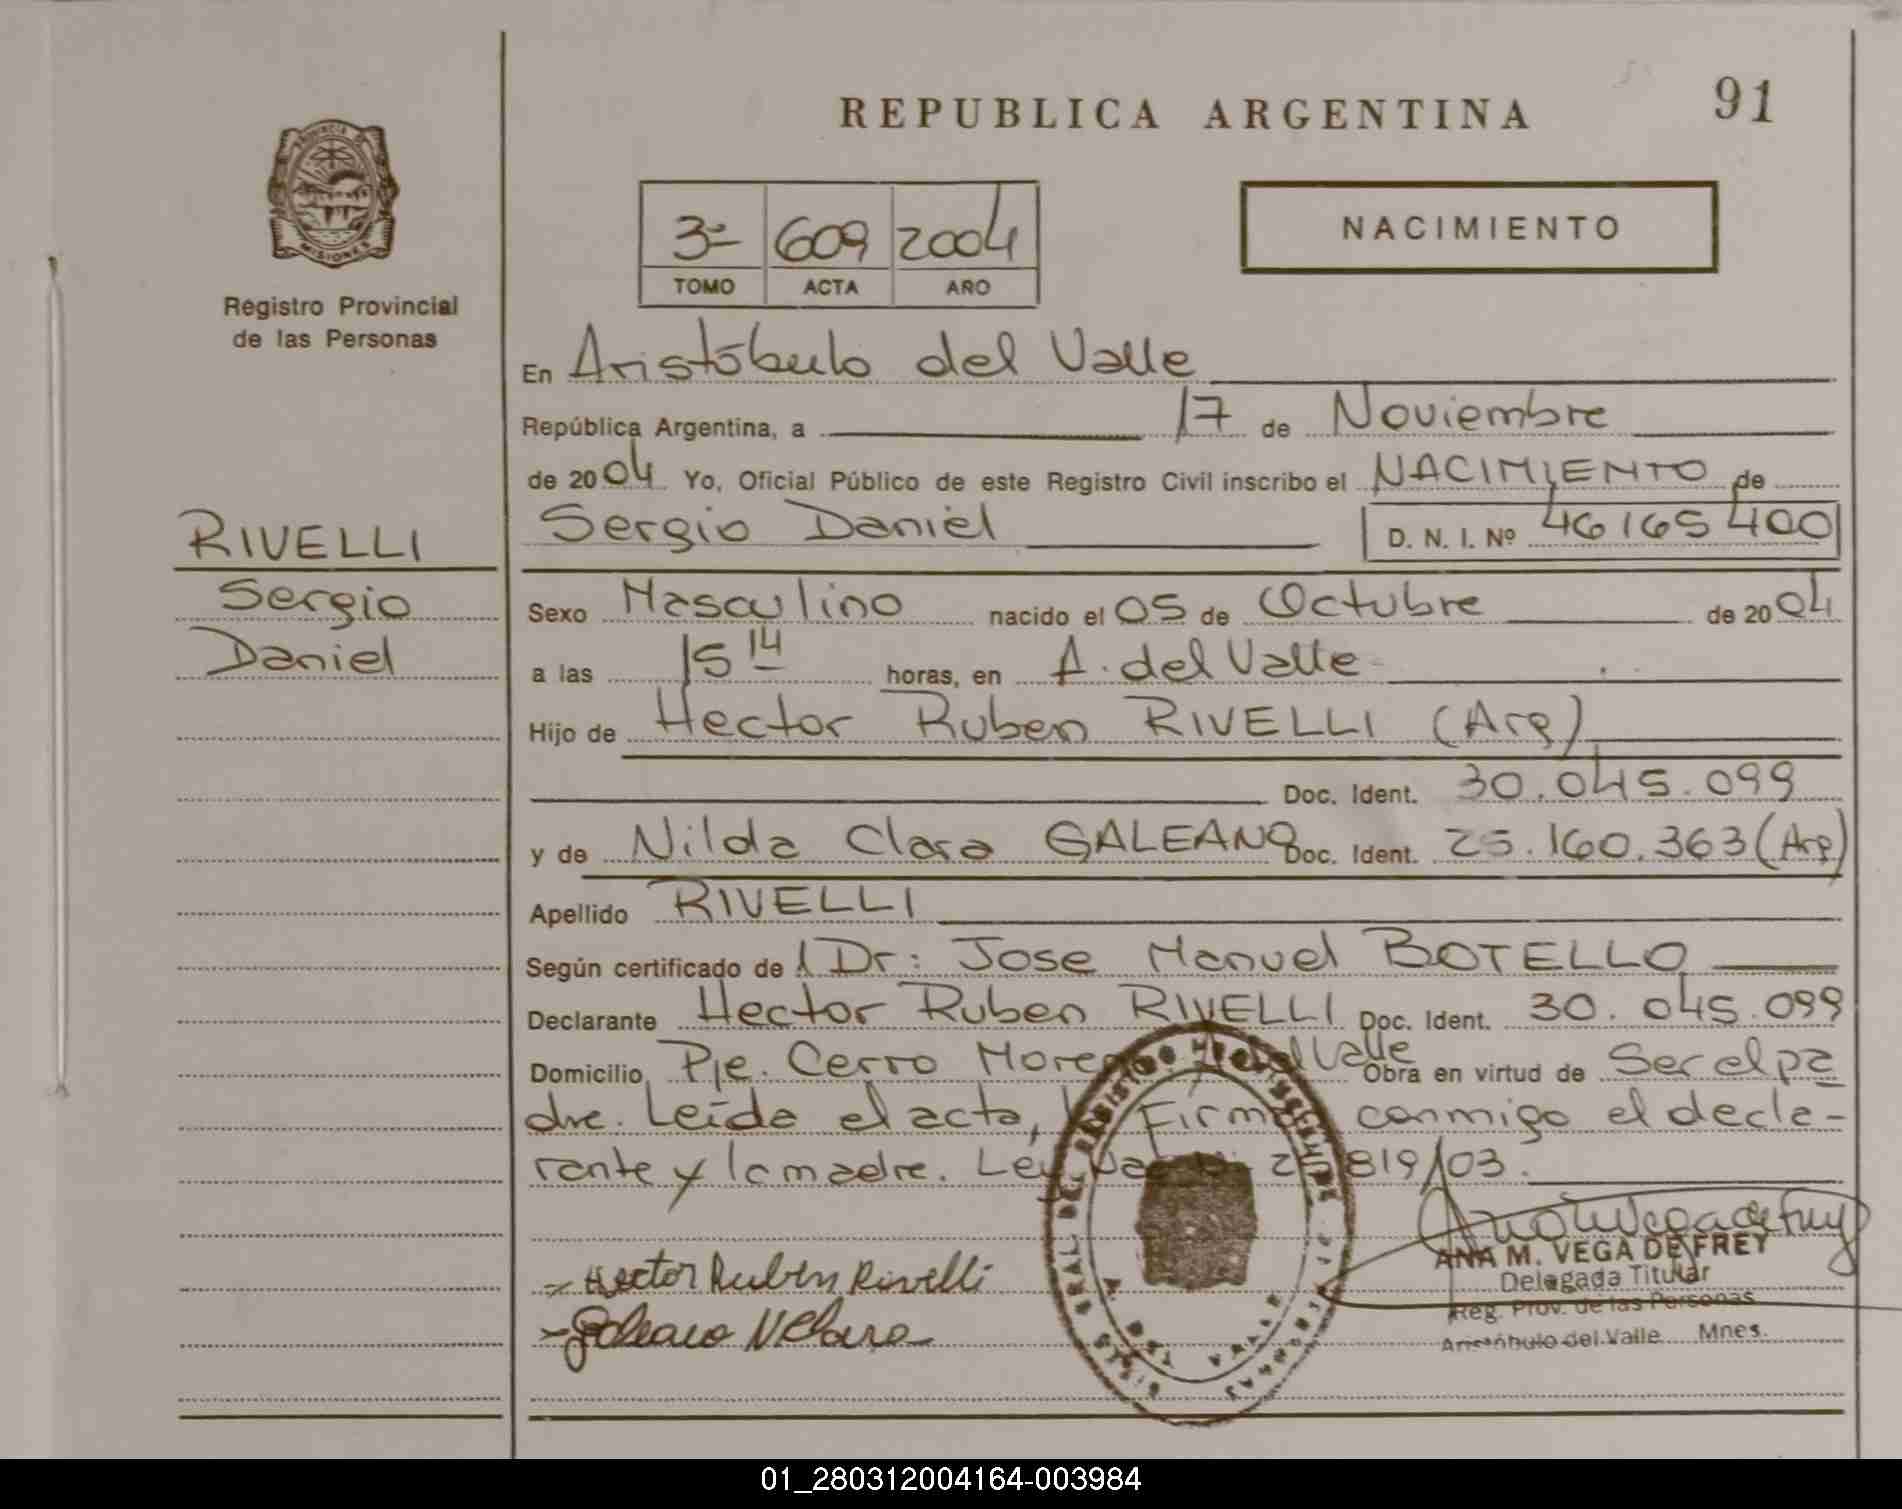 REPUBLICA ARGENTINA
91
PROVINCIA DE
MISIONES
Registro Provincial
de las Personas
3º 609 2004
TOMO ACTA AÑO
NACIMIENTO
En Aristóbulo del Valle
República Argentina, a 17 de Noviembre
de 2004 Yo, Oficial Público de este Registro Civil inscribo el NACIMIENTO de
Sergio Daniel D. N. I. Nº 46165400
RIVELLI
Sergio
Daniel
Sexo Masculino nacido el 05 de Octubre de 2004
a las 15 14 horas, en A. del Valle
Hijo de Hector Ruben RIVELLI (Arg)
Doc. Ident. 30.045.099
y de Nilda Clara GALEANO Doc. Ident. 25.160.363 (Arg)
Apellido RIVELLI
Según certificado de l Dr: Jose Manuel BOTELLO
Declarante Hector Ruben RIVELLI Doc. Ident. 30.045.099
Domicilio Pje. Cerro More Valle Obra en virtud de Ser el pa
dre. Leída el acta, Firma conmigo el decla-
rante y la madre. Ley 819/03.
Hector Ruben Rivelli
Galeano N Clara
ANA M. VEGA DE FREY
Delegada Titular
Reg. Prov. de las Personas
Aristóbulo del Valle Mnes.
01_280312004164-003984